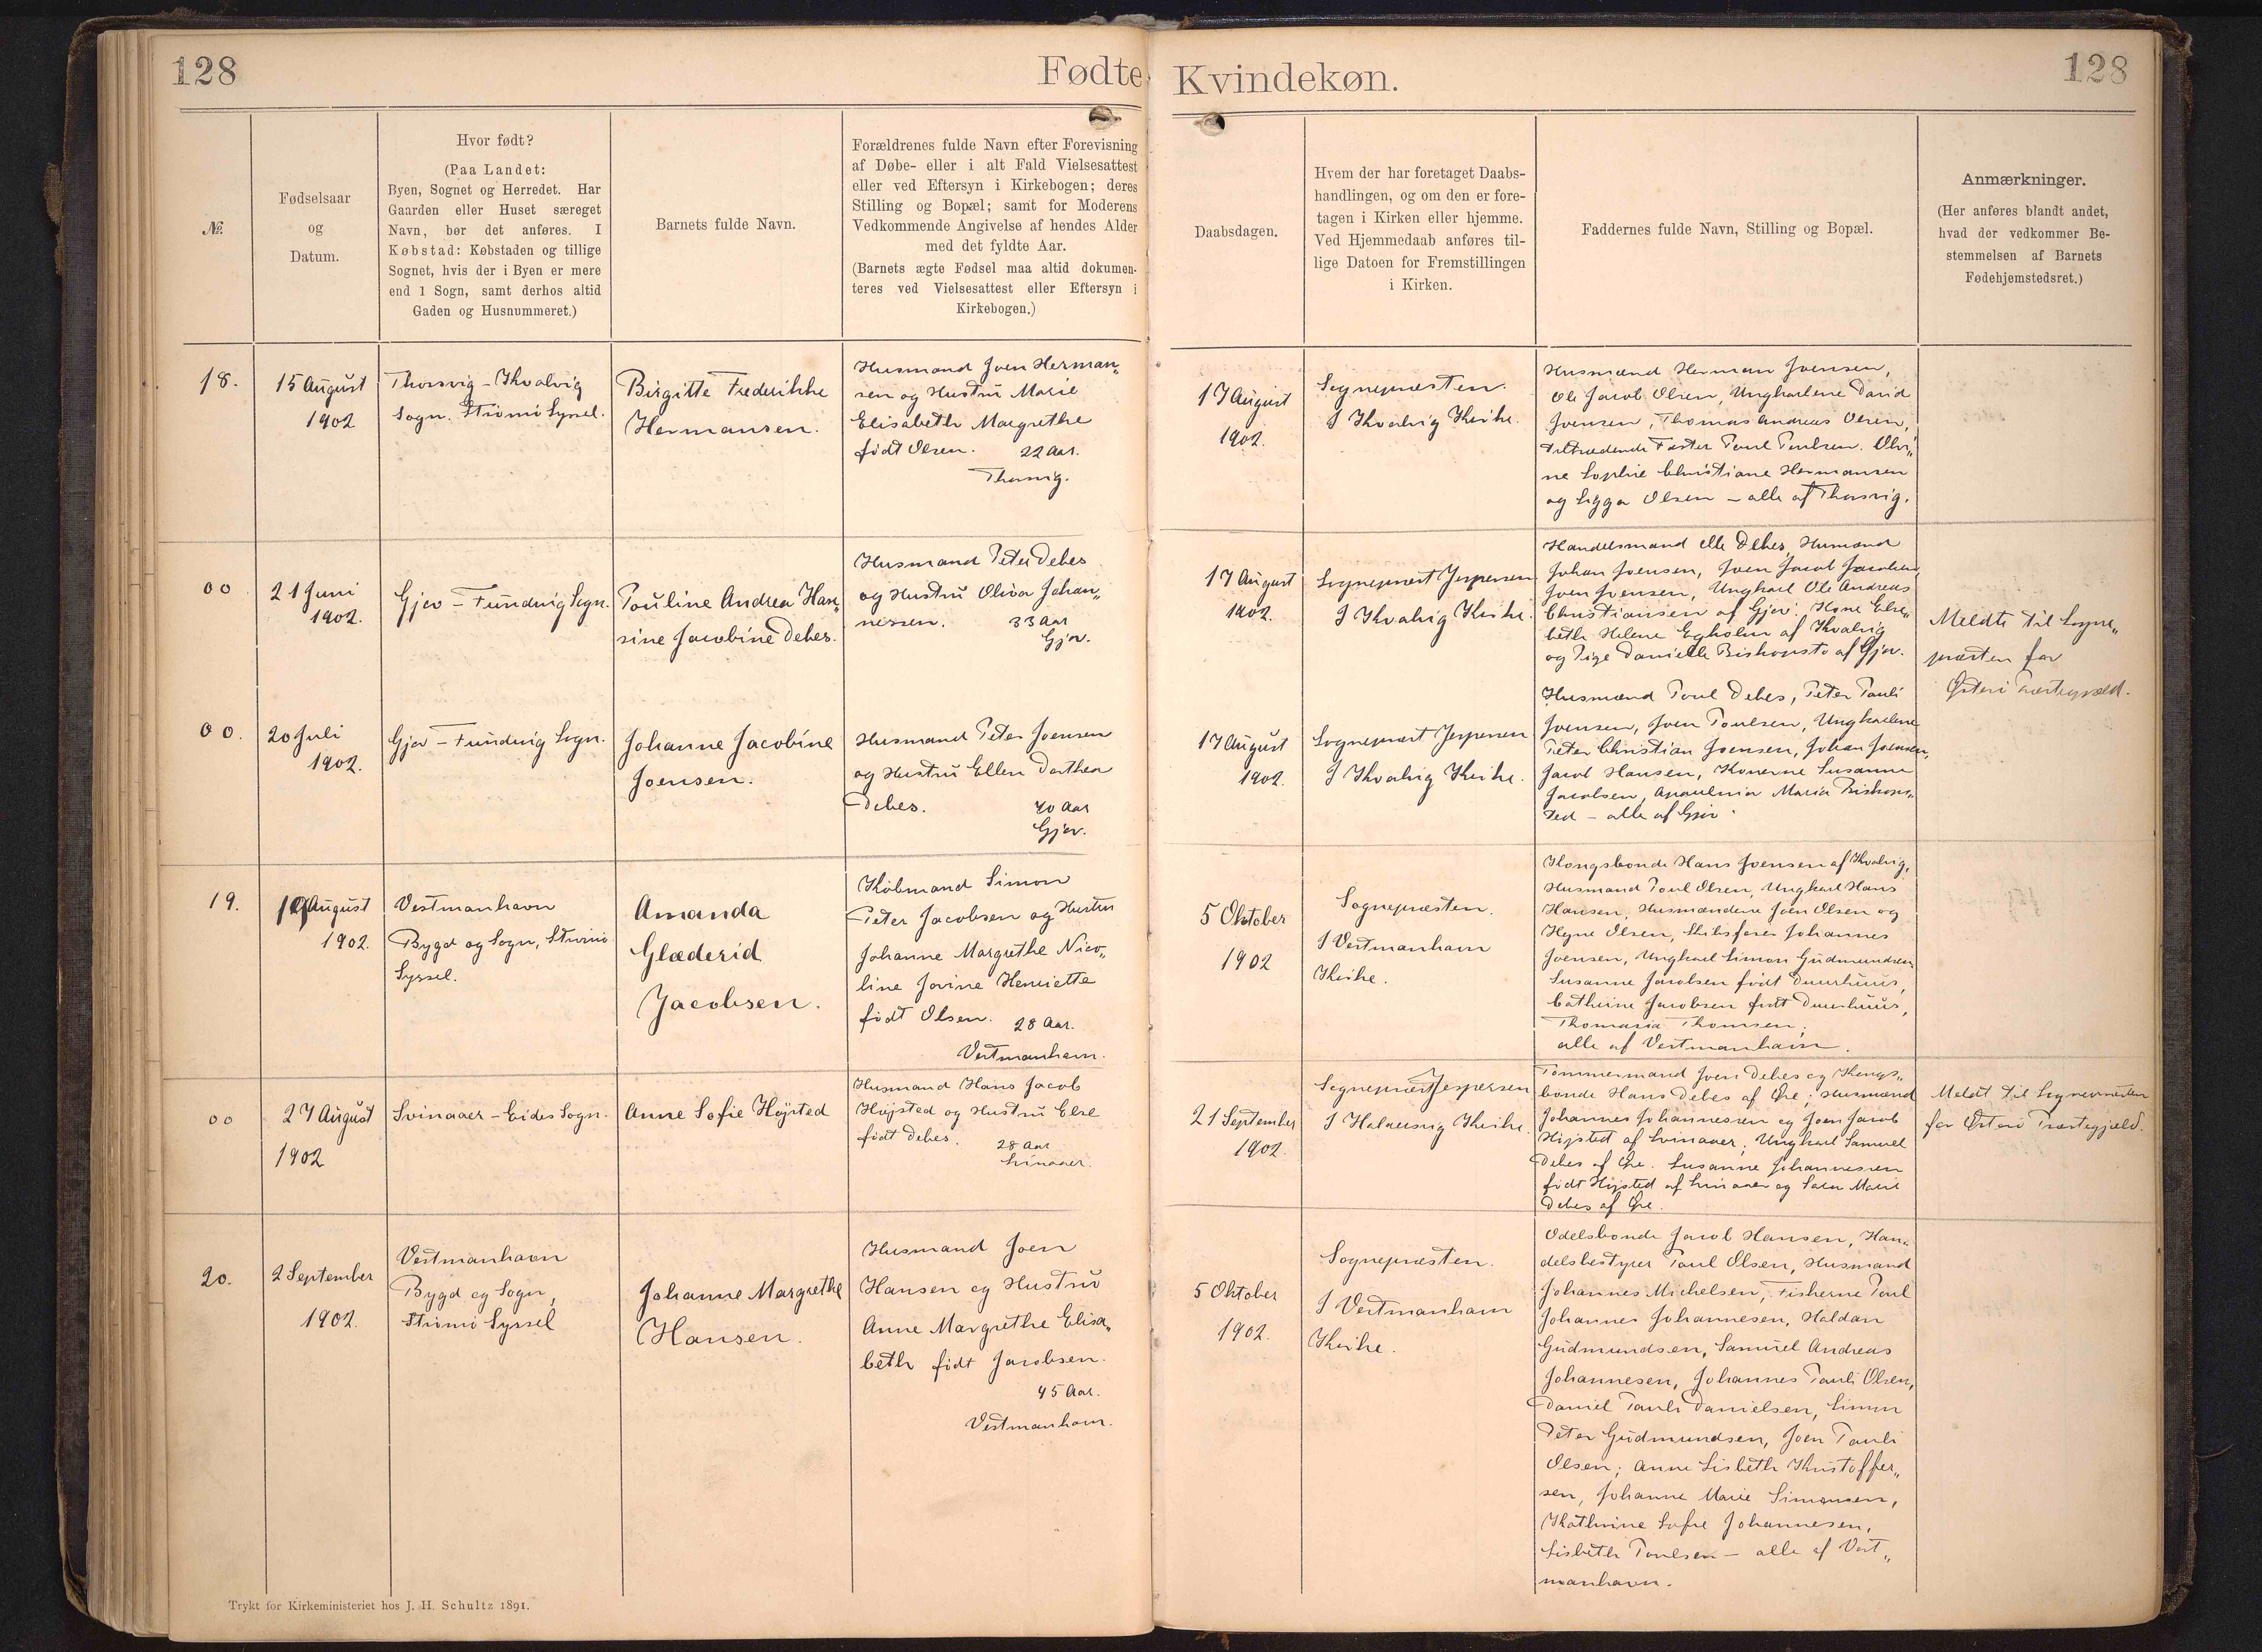 128
Fødte
Kvindekøn.
128
№.
Fødselsaar
og
Datum.
Hvor født?
(Paa Landet:
Byen, Sognet og Herredet. Har
Gaarden eller Huset særeget
Navn, bør det anføres. I
Købstad: Købstaden og tillige
Sognet, hvis der i Byen er mere
end 1 Sogn, samt derhos altid
Gaden og Husnummeret.)
Barnets fulde Navn.
Forældrenes fulde Navn efter Forevisning
af Døbe- eller i alt Fald Vielsesattest
eller ved Eftersyn i Kirkebogen; deres
Stilling og Bopæl; samt for Moderens
Vedkommende Angivelse af hendes Alder
med det fyldte Aar.
(Barnets ægte Fødsel maa altid dokumen-
teres ved Vielsesattest eller Eftersyn i
Kirkebogen.)
Daabsdagen.
Hvem der har foretaget Daabs-
handlingen, og om den er fore-
tagen i Kirken eller hjemme.
Ved Hjemmedaab anføres til-
lige Datoen for Fremstillingen
i Kirken.
Faddernes fulde Navn, Stilling og Bopæl.
Anmærkninger.
(Her anføres blandt andet,
hvad der vedkommer Be-
stemmelsen af Barnets
Fødehjemstedsret.)
18.
15 August
1902
Thorsvig - Kvalvig
Sogn. Strömö Syssel.
Birgitte Frederikke
Hermansen.
Husmand Joen Herman„
sen og Hustru Marie
Elisabeth Margrethe
født Olsen. 22 Aar.
Thorsvig.
17 August
1902.
Sognepræsten.
I Kvalvig Kirke.
Husmænd Herman Joensen,
Ole Jacob Olsen, Ungkarlene David
Joensen, Thomas Andreas Olsen,
Tiltrædende Fæster Poul Poulsen. Olvi„
ne Sophie Christiane Hermansen
og Sigga Olsen - alle af Thorsvig.
00
21 Juni
1902.
Gjov - Funding Sogn.
Pouline Andrea Han„
sine Jacobine Debes.
Husmand Peter Debes
og Hustru Olivia Johan„
nessen. 33 Aar
Gjov.
17 August
1902.
Sognepræst Jespersen
I Kvalvig Kirke.
Handelsmand Debes, Husmænd
Johan Joensen, Joen Jacob Jacobsen,
Joen Joensen, Ungkarl Ole Andreas
Christiansen af Gjov. Kone Else„
beth Helene Egholm af Kvalvig
og Pige Danielle Biskopstø af Gjov.
Meldt til Sogne„
præsten for
Østerø Præstegjæld.
00.
20 Juli
1902.
Gjov - Funding Sogn.
Johanne Jacobine
Joensen.
Husmand Peter Joensen
og Hustru Ellen Dorthea
Debes. 40 Aar
Gjov.
17 August
1902.
Sognepræst Jespersen
I Kvalvig Kirke.
Husmænd Poul Debes, Peter Pauli
Joensen, Joen Poulsen, Ungkarlene
Peter Christian Joensen, Johan Joensen,
Jacob Hansen, Konerne Susanne
Jacobsen, Apaulnia Maria Biskops„
ted - alle af Gjov.
19.
19 August
1902.
Vestmanhavn
Bygd og Sogn, Strömö
Syssel.
Amanda
Glæderid
Jacobsen.
Købmand Simon
Peter Jacobsen og Hustru
Johanne Margrethe Nico„
line Jovine Henriette
født Olsen. 28 Aar.
Vestmanhavn.
5 Oktober
1902
Sognepræsten.
I Vestmanhavn
Kirke.
Kongsbonde Hans Joensen af Kvalvig,
Husmand Poul Olsen, Ungkarl Hans
Hansen, Husmændene Joen Olsen og
Høgne Olsen, Skibsfører Johannes
Joensen, Ungkarl Simon Gudmundsen,
Susanne Jacobsen født Duurhuus,
Cathrine Jacobsen født Duurhuus,
Thomasia Thomsen;
alle af Vestmanhavn.
00
27 August
1902
Svinaaer - Eides Sogn.
Anne Sofie Højsted
Husmand Hans Jacob
Højsted og Hustru Else
født Debes. 28 Aar
Svinaaer.
21 September
1902.
Sognepræst Jespersen
I Haldersvig Kirke.
Tømmermand Joen Debes og Kongs„
bonde Hans Debes af Ore; Husmænd
Johannes Johannesen og Joen Jacob
Højsted af Svinaaer; Ungkarl Samuel
Debes af Ore. Susanne Johannesen
født Højsted af Svinaaer og Marie
Debes af Ore.
Meldt til Sognepræsten
for Østerø Præstegjæld.
20.
2 September
1902.
Vestmanhavn
Bygd og Sogn,
Strömö Syssel
Johanne Margrethe
Hansen.
Husmand Joen
Hansen og Hustru
Anne Margrethe Elisa„
beth født Jacobsen.
45 Aar.
Vestmanhavn.
5 Oktober
1902.
Sognepræsten.
I Vestmanhavn
Kirke.
Odelsbonde Jacob Hansen, Han„
delsbestyrer Poul Olsen, Husmand
Johannes Michelsen, Fiskerne Poul
Johannes Johannesen, Haldan
Gudmundsen, Samuel Andreas
Johannesen, Johannes Pauli Olsen,
Daniel Pauli Danielsen, Simon
Peter Gudmundsen, Joen Pauli
Olsen; Anne Lisbeth Kristoffer„
sen, Johanne Marie Simonsen,
Kathrine Sofie Johannesen,
Lisbeth Poulsen - alle af Vest„
manhavn.
Trykt for Kirkeministeriet hos J. H. Schultz 1891.